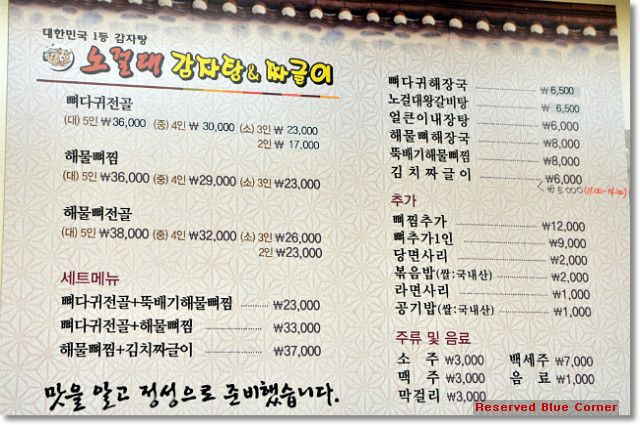 대한민국 1등 감자탕
노걸대 감자탕 & 짜글이
뼈다귀전골
(대) 5인 ₩36,000 (중) 4인 ₩30,000 (소) 3인 ₩23,000
2인 ₩17,000
해물뼈찜
(대) 5인 ₩36,000 (중) 4인 ₩29,000 (소) 3인 ₩23,000
해물뼈전골
(대) 5인 ₩38,000 (중) 4인 ₩32,000 (소) 3인 ₩26,000
2인 ₩23,000
세트메뉴
뼈다귀전골+뚝배기해물뼈찜 ₩23,000
뼈다귀전골+해물뼈찜 ₩33,000
해물뼈찜+김치짜글이 ₩37,000
맛을 알고 정성으로 준비했습니다.
뼈다귀해장국 ₩6,500
노걸대왕갈비탕 ₩6,500
얼큰이내장탕 ₩6,000
해물뼈해장국 ₩8,000
뚝배기해물뼈찜 ₩8,000
김치짜글이 ₩6,000
₩5,000
추가
뼈찜추가 ₩12,000
뼈추가1인 ₩9,000
당면사리 ₩2,000
볶음밥(쌀:국내산) ₩2,000
라면사리 ₩1,000
공기밥(쌀:국내산) ₩1,000
주류 및 음료
소주 ₩3,000 백세주 ₩7,000
맥주 ₩3,000 음료 ₩1,000
막걸리 ₩3,000
Reserved Blue Corner